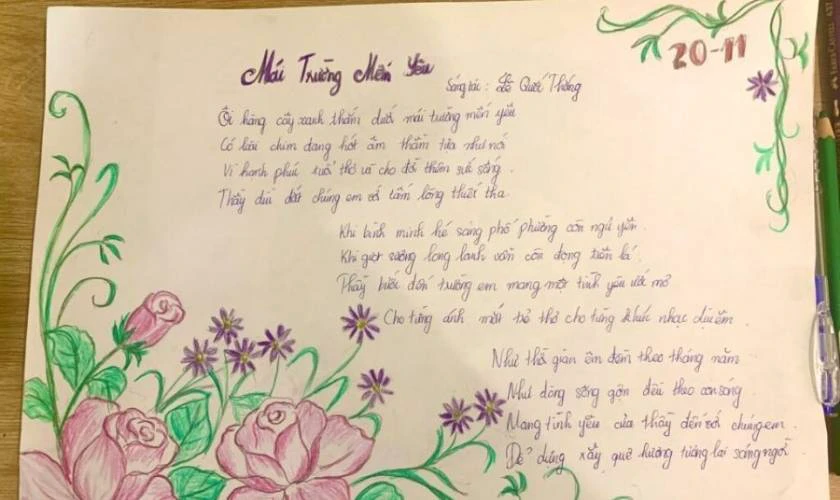 20-11
Mái Trường Mến Yêu
Sáng tác: Lê Quốc Thắng
Ôi hàng cây xanh thắm dưới mái trường mến yêu
Có loài chim đang hót âm thầm tựa như nói
Vì hạnh phúc tuổi thơ vì cho đời thêm sức sống.
Thầy dìu dắt chúng em với tấm lòng thiết tha.
Khi bình minh hé sáng phố phường còn ngủ yên.
Khi giọt sương long lanh vẫn còn đọng trên lá.
Thầy bước đến trường em mang một tình yêu ước mơ
Cho từng ánh mắt trẻ thơ cho từng khúc nhạc dịu êm.
Như thời gian êm đềm theo tháng năm
Như dòng sông gợn đều theo con sóng
Mang tình yêu của thầy đến với chúng em.
Để dựng xây quê hương tương lai sáng ngời.